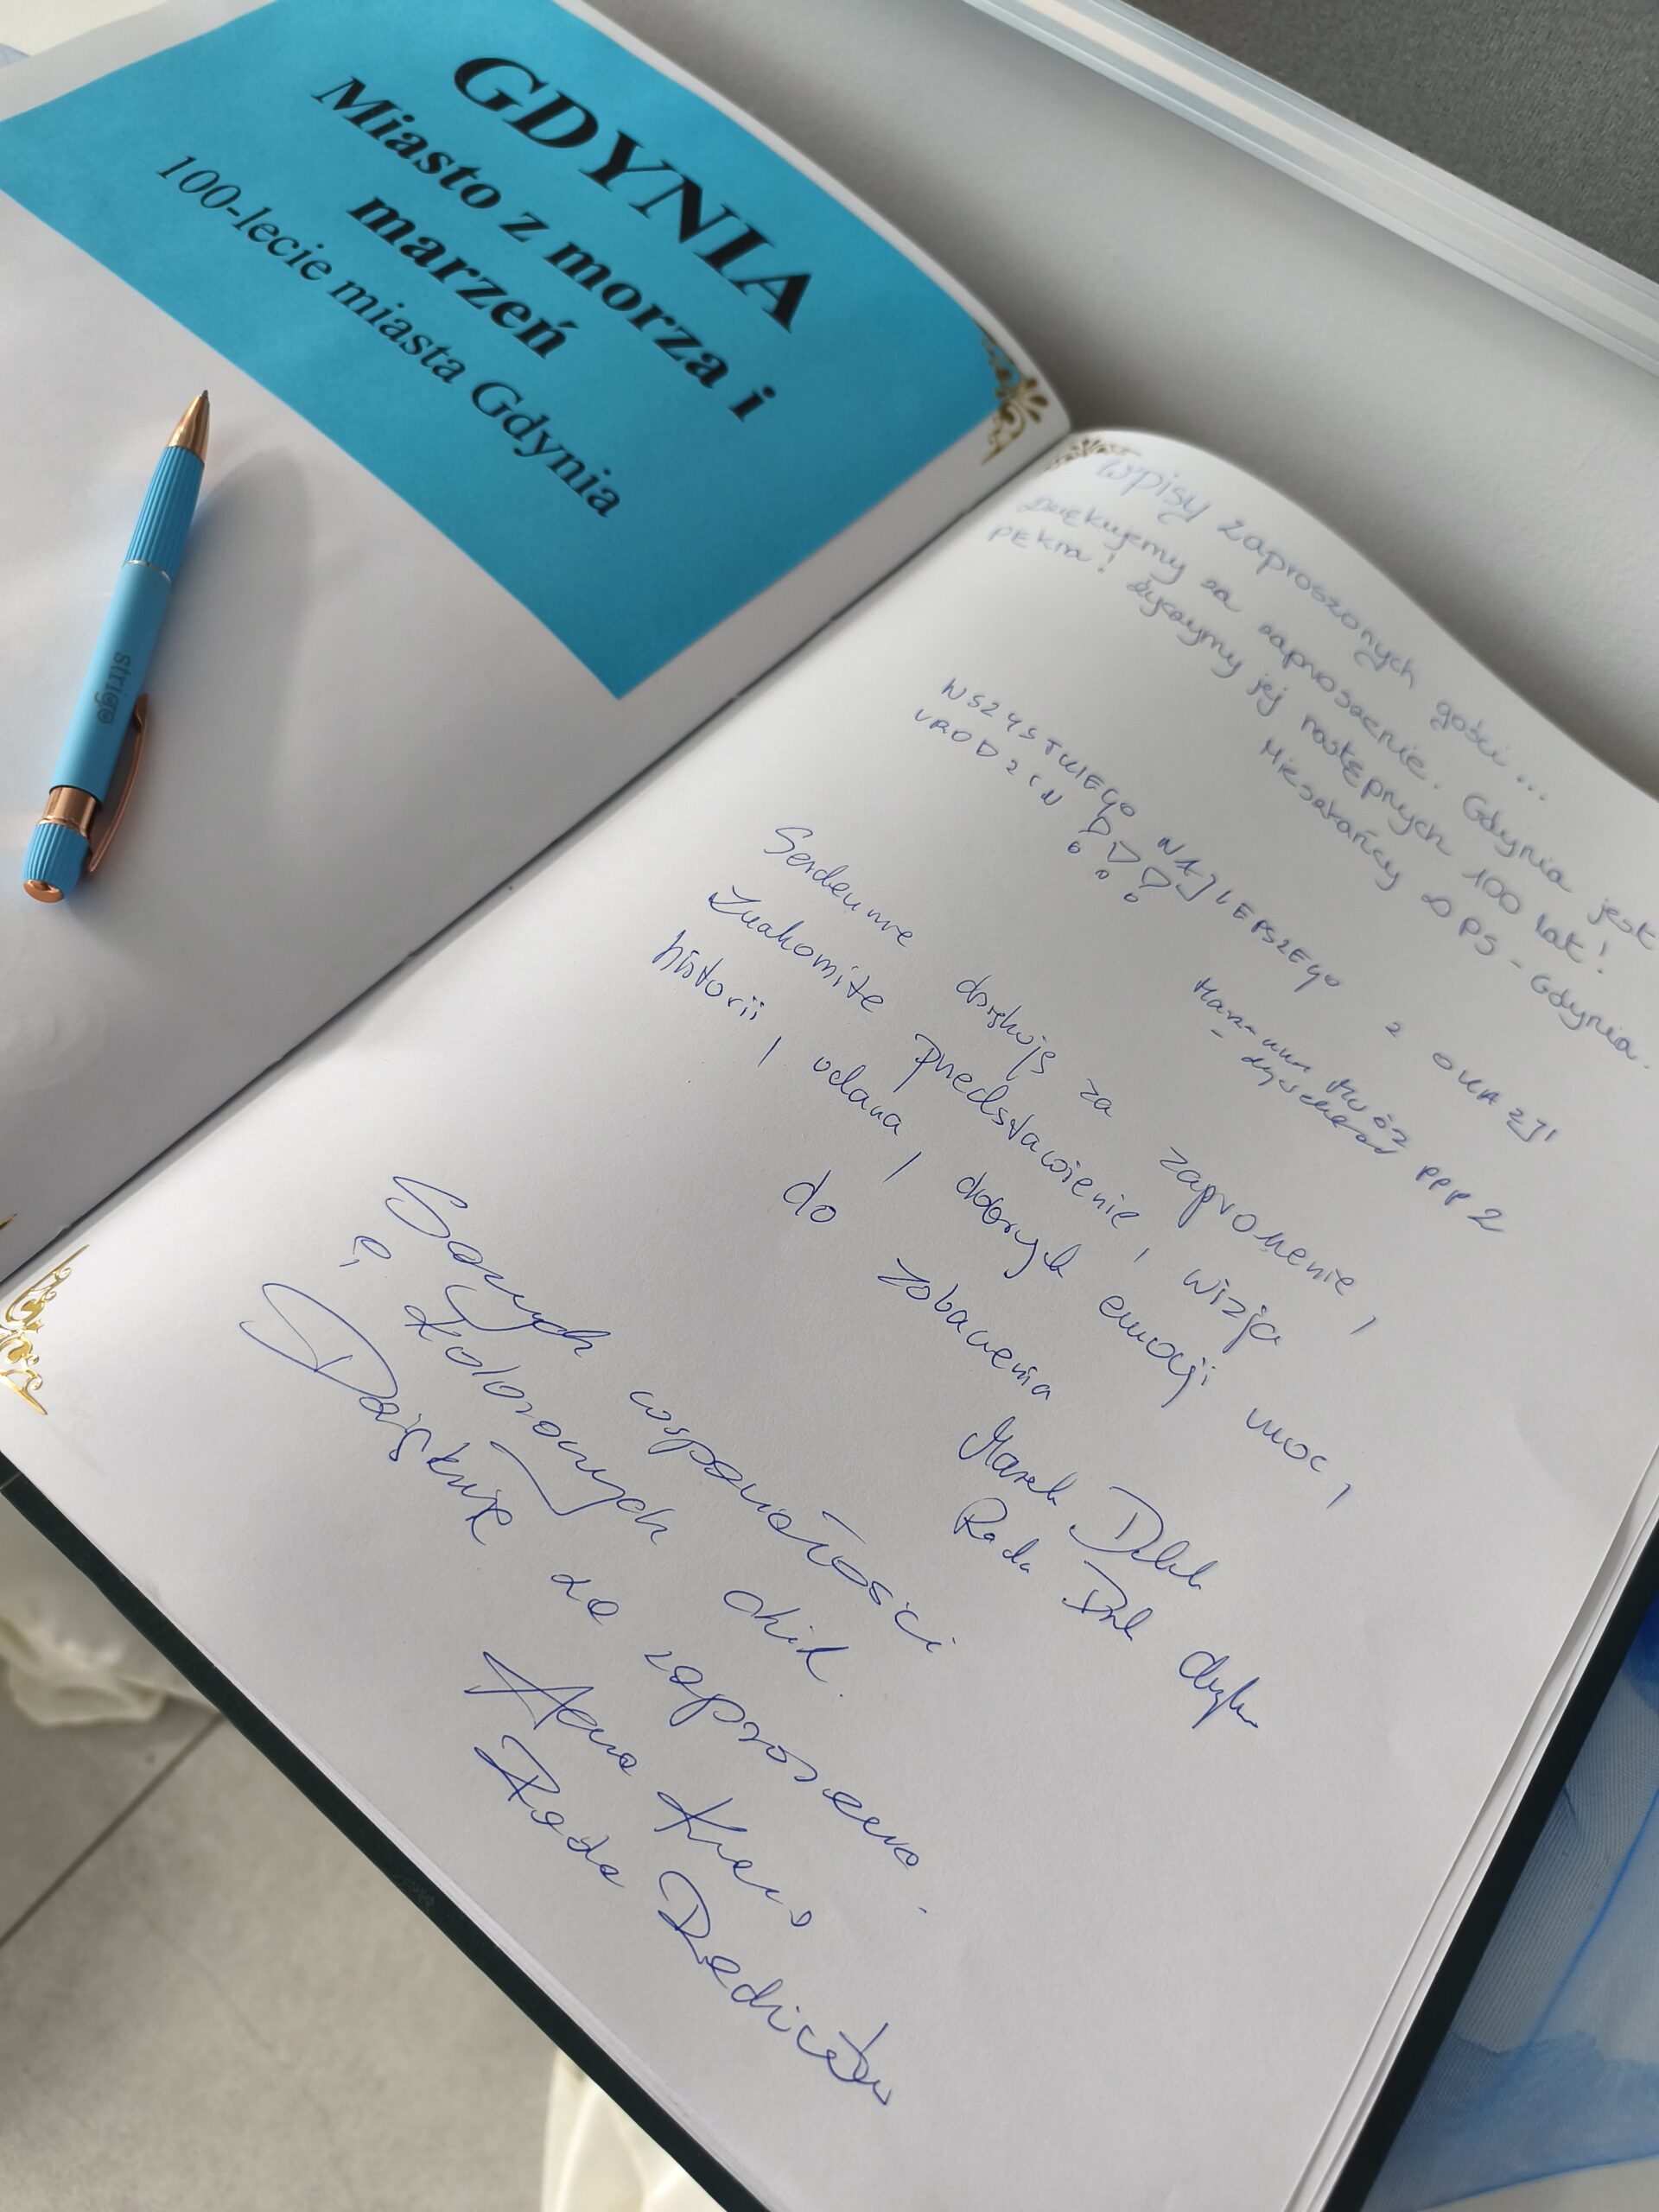 GDYNIA
Miasto z morza i
marzeń
100-lecie miasta Gdynia
strigo
Wpisy zaproszonych gości...
Dziękujemy za zaproszenie. Gdynia jest
piękna! Życzymy jej następnych 100 lat!
Mieszkańcy DPS - Gdynia.
WSZYSTKIEGO NAJLEPSZEGO Z OKAZJI
URODZIN !!!
PPP 2
Serdecznie dziękuję za zaproszenie,
Znakomite przedstawienie, wizja
historii, odana, dobrych emocji moc,
do zobaczenia
Marek
Rada
Samych wspaniałości
i kolorowych chwil.
Dziękuję za zaproszenie.
Anna
Rada Rodziców